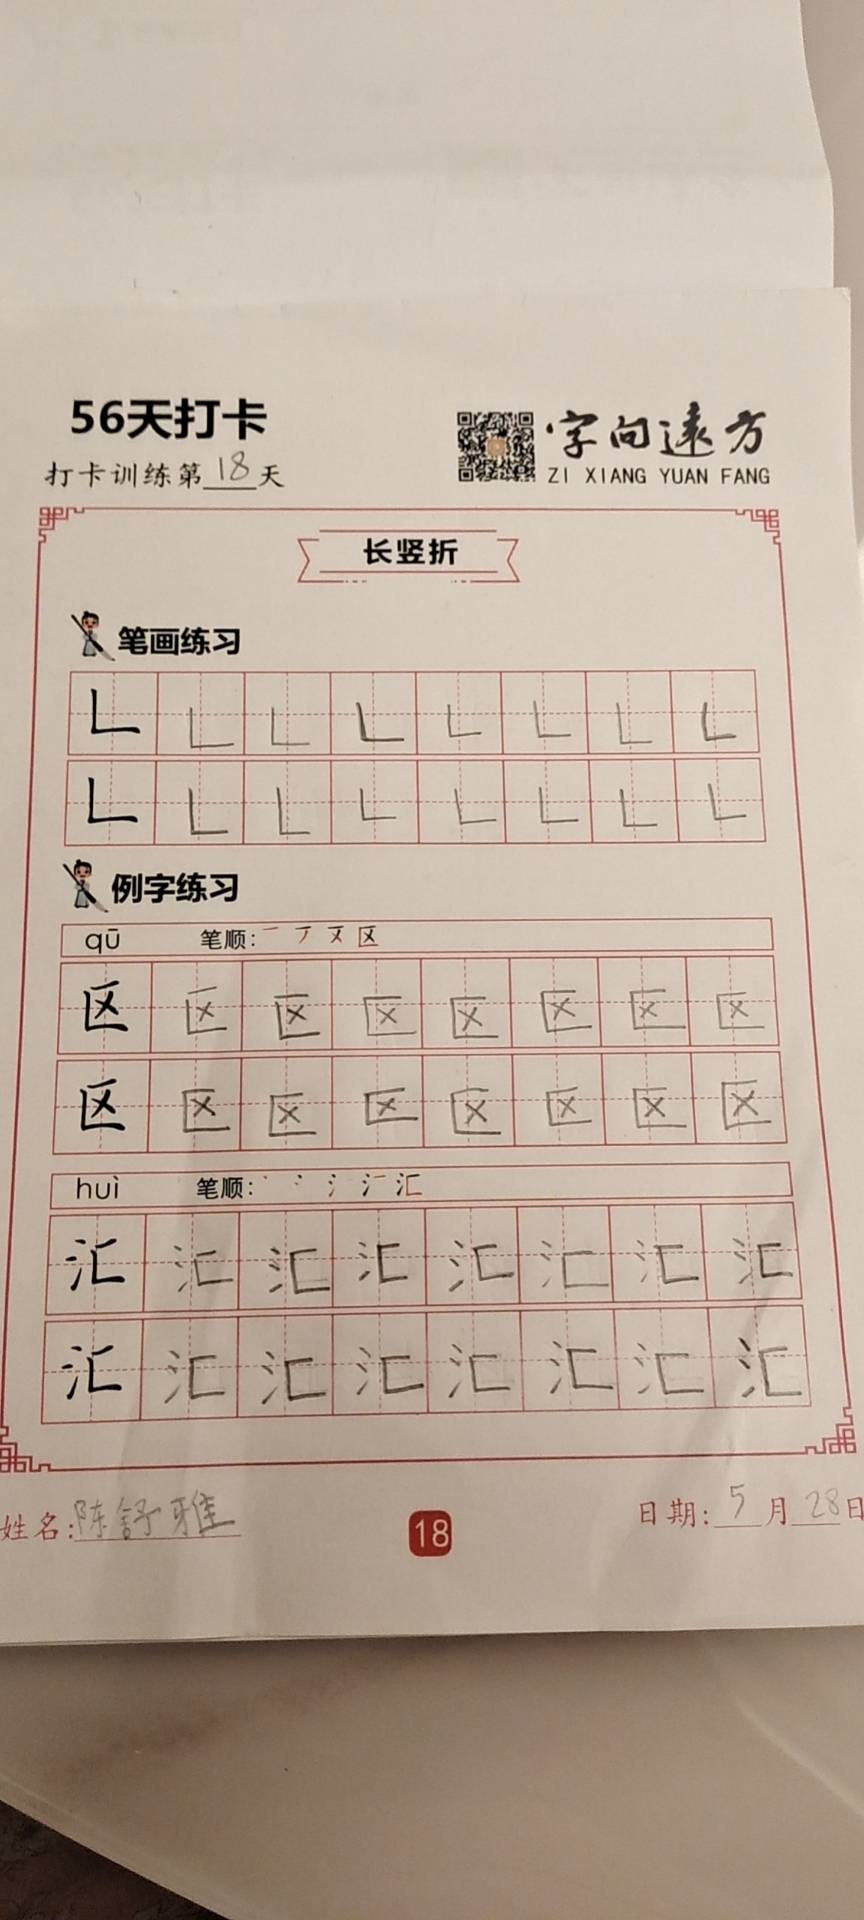 56天打卡
打卡训练第18天
字向远方
ZI XIANG YUAN FANG
长竖折
笔画练习
𠃊 𠃊 𠃊 𠃊 𠃊 𠃊 𠃊 𠃊
𠃊 𠃊 𠃊 𠃊 𠃊 𠃊 𠃊 𠃊
例字练习
qū 笔顺: 区
区 区 区 区 区 区 区 区
区 区 区 区 区 区 区 区
huì 笔顺: 汇
汇 汇 汇 汇 汇 汇 汇 汇
汇 汇 汇 汇 汇 汇 汇 汇
姓名:陈舒雅
18
日期:5月28日